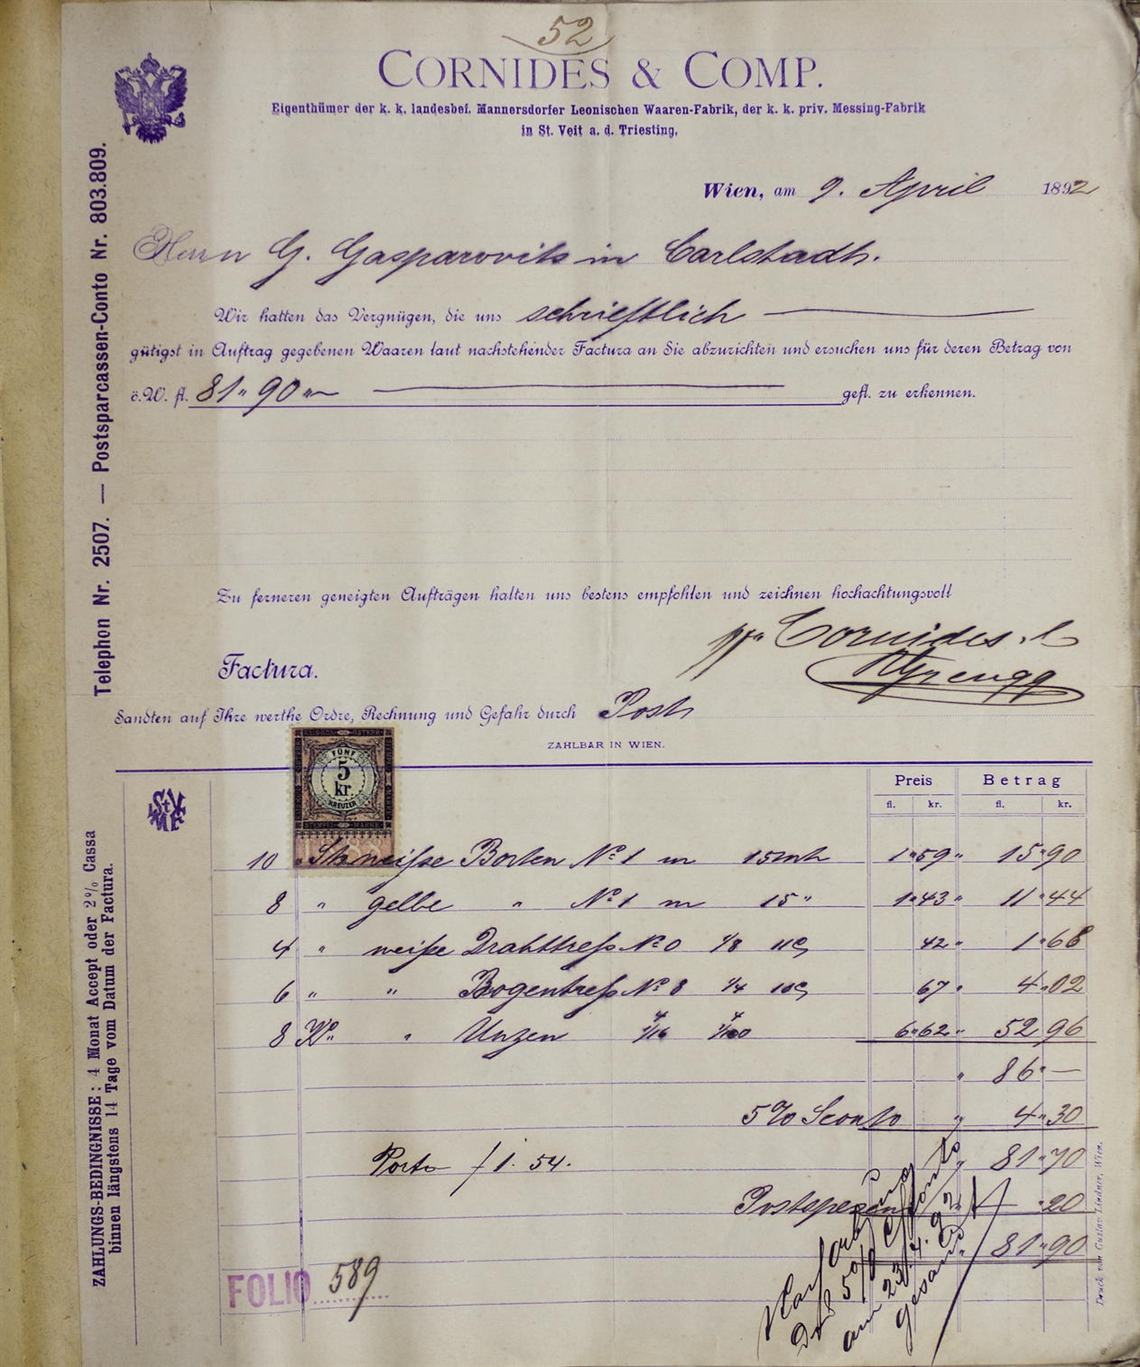 52
CORNIDES & COMP.
Eigenthümer der k. k. landesbef. Mannersdorfer Leonischen Waaren-Fabrik, der k. k. priv. Messing-Fabrik
in St. Veit a. d. Triesting.
Wien, am 9. April 1892
Herrn G. Gasparovits in Carlstadt.
Wir hatten das Vergnügen, die uns schriftlich
gütigst in Auftrag gegebenen Waaren laut nachstehender Factura an Sie abzurichten und ersuchen uns für deren Betrag von
ö.W. fl. 81" 90" gefl. zu erkennen.
Zu ferneren geneigten Aufträgen halten uns bestens empfohlen und zeichnen hochachtungsvoll
ppa Cornides &
Factura.
Sandten auf Ihre werthe Ordre, Rechnung und Gefahr durch Post
ZAHLBAR IN WIEN.
FÜNF
5
kr.
KREUZER
Preis Betrag
fl. kr. fl. kr.
10 " Stk weiße Borten No. 1 m 15 mtr 1"59" 15"90
8 " gelbe " No. 1 m 15 " 1"43" 11"44
4 " weiße Drahttreß No. 0 1/8 42" 1"68
6 " " Bogentreß No. 8 1/4 67" 4"02
8 " " Unzen 6"62" 52"96
" 86"—
5% Sconto " 4"30
Porto f 1. 54. " 81"70
Postspesen "20
" 81"90
5% Sconto
am 23/4. 92
gesandt
FOLIO 589
Telephon Nr. 2507. — Postsparcassen-Conto Nr. 803.809.
ZAHLUNGS-BEDINGNISSE: 4 Monat Accept oder 2% Cassa
binnen längstens 14 Tage vom Datum der Factura.
Druck von Gustav Lindner, Wien.